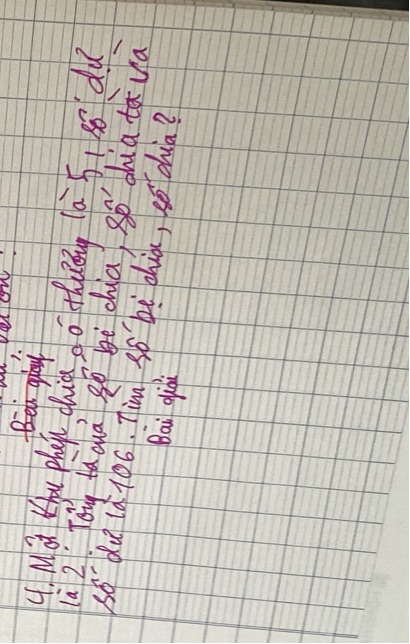 Bài giải
4. Một khu phép chia có thương là 5, số dư
là 2. Tổng là của số bị chia, số chia là và
số dư là 106. Tìm số bị chia, số chia?
Bài giải